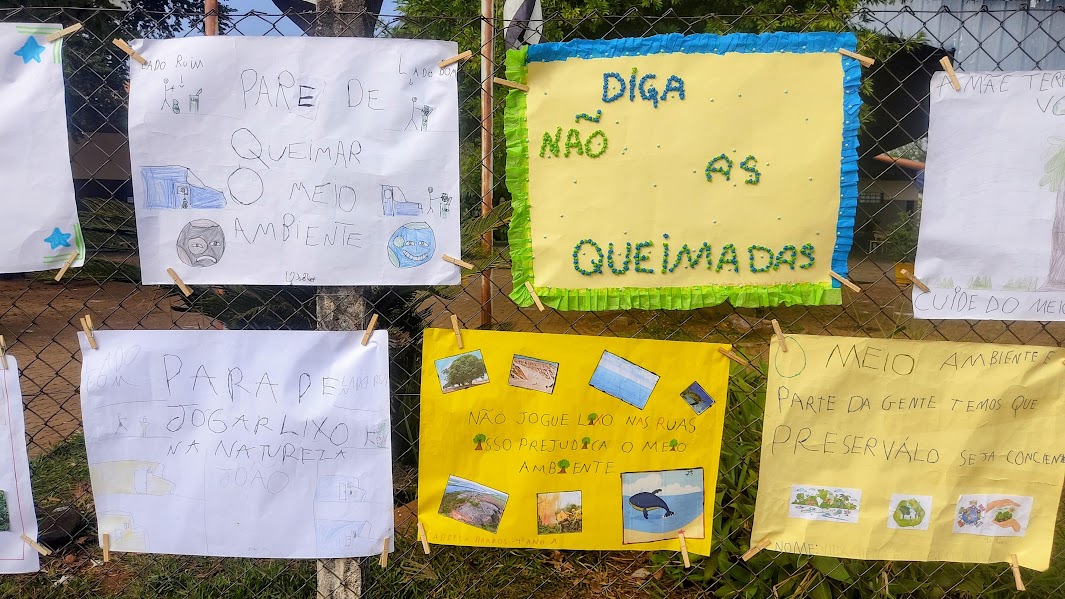 LADO RUIM
LADO BOM
PARE DE
QUEIMAR
O MEIO
AMBIENTE
DIGA
NÃO
AS
QUEIMADAS
A MÃE TERR
VO
CUIDE DO MEIO
LADO
BOM
PARA DE
JOGAR LIXO
NA NATUREZA
JOÃO
NÃO JOGUE LIXO NAS RUAS
ISSO PREJUDICA O MEIO
AMBIENTE
O MEIO AMBIENTE E
PARTE DA GENTE TEMOS QUE
PRESERVÁLO SEJA CONCIENE
NOME: